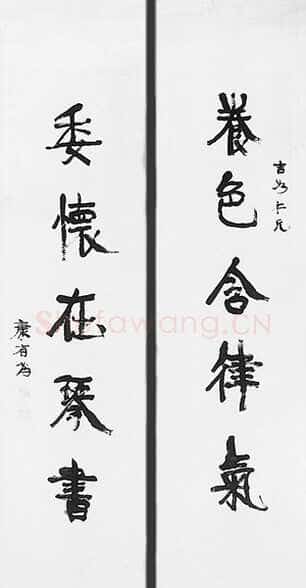 吉仁兄
養色含律氣
委懷在琴書
康有為
Shufawang.CN